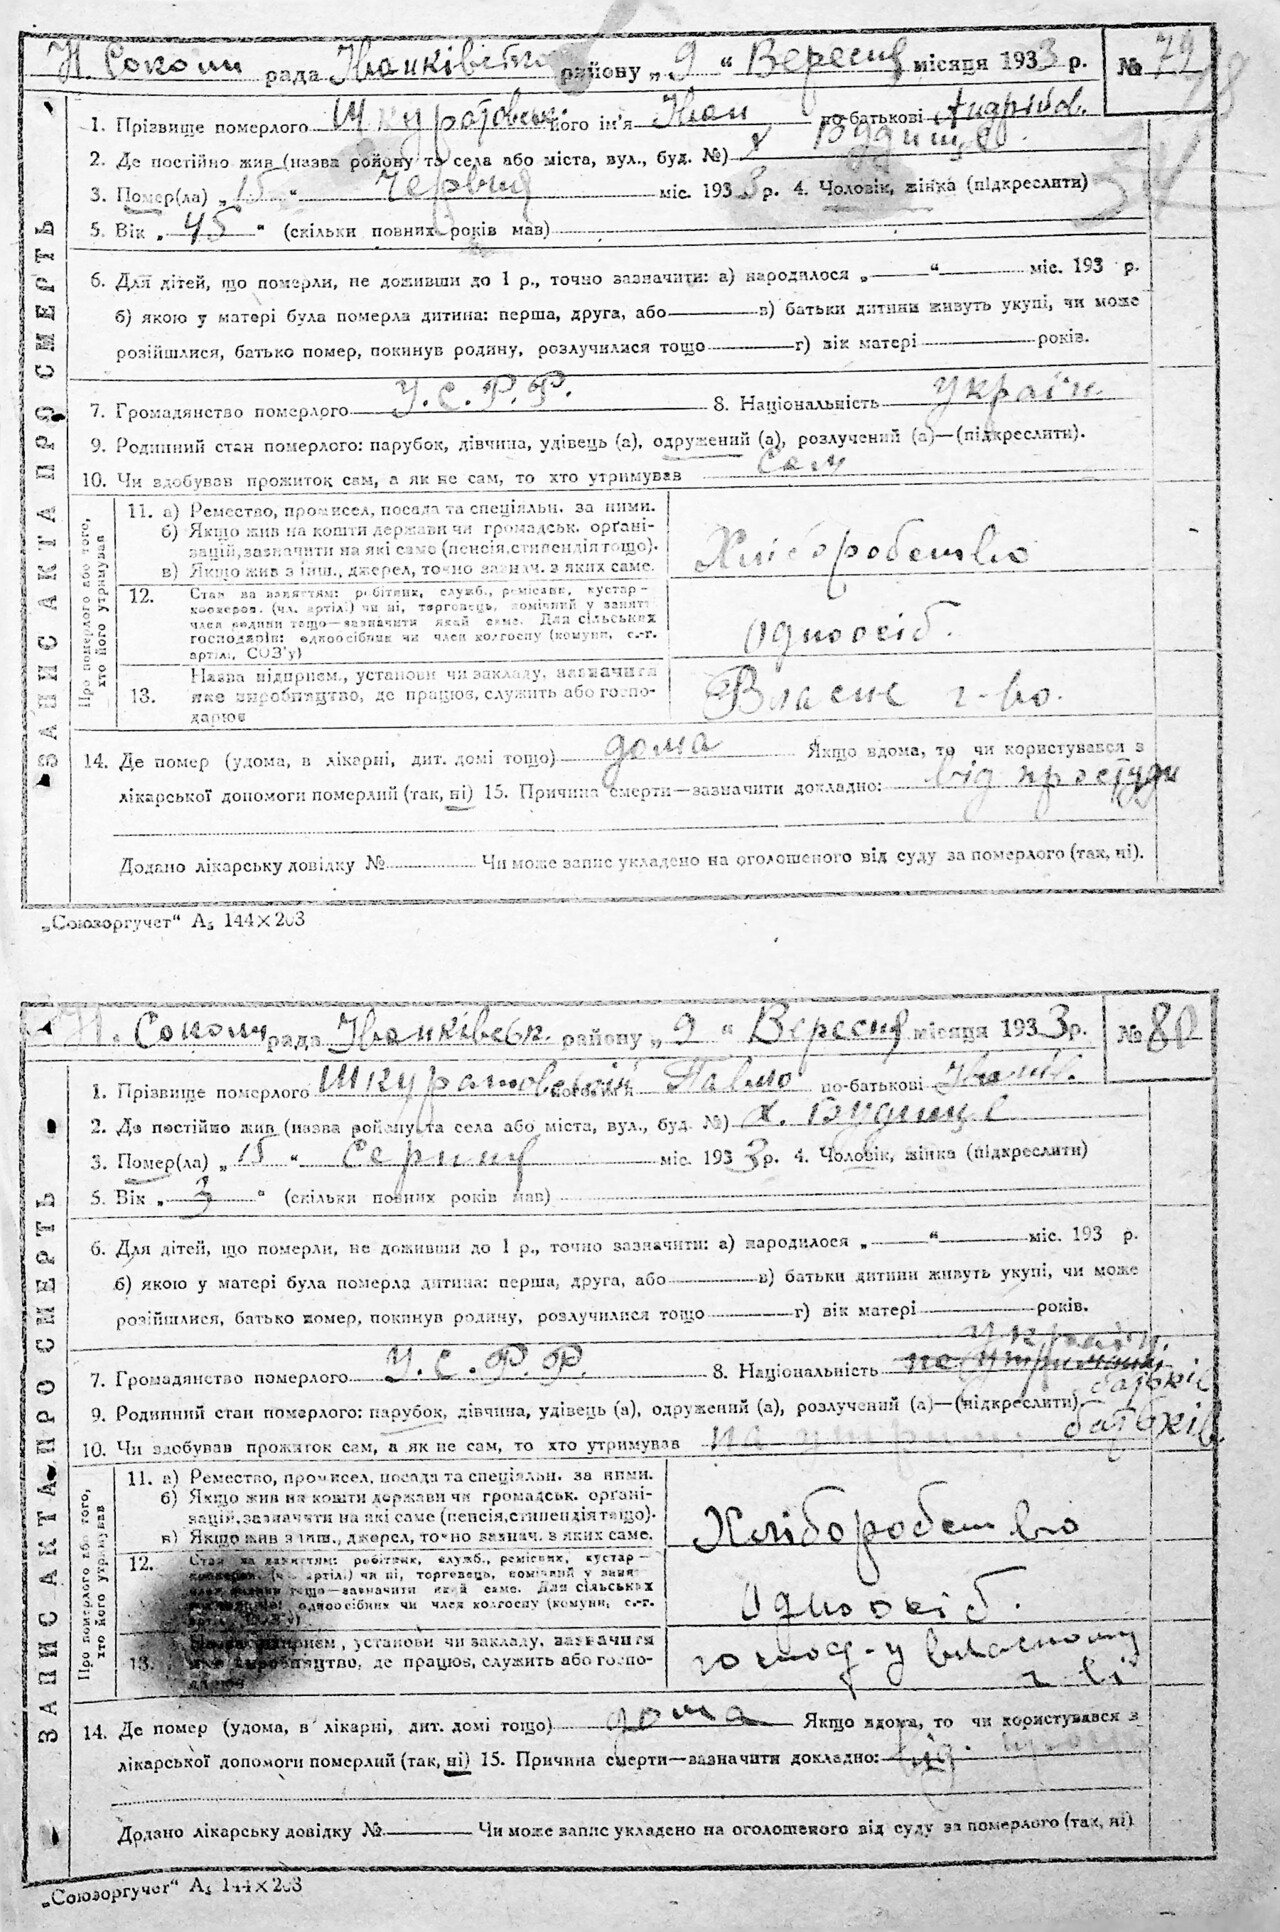 Н. Соколи рада Іванківськ району „9“ Вересня місяця 1933 р. № 79
ЗАПИС АКТА ПРО СМЕРТЬ
1. Прізвище померлого Шкуратовськ його ім'я Іван по-батькові Андрійов.
2. Де постійно жив (назва ройону та села або міста, вул., буд. №) х Будище
3. Помер(ла) „15“ Червня міс. 1933 р. 4. Чоловік, жінка (підкреслити)
5. Вік „45“ (скільки повних років мав)
6. Для дітей, що померли, не доживши до 1 р., точно зазначити: а) народилося „ “ міс. 193 р.
б) якою у матері була померла дитина: перша, друга, або в) батьки дитини живуть укупі, чи може
розійшлися, батько помер, покинув родину, розлучилися тощо г) вік матері років.
7. Громадянство померлого У.С.Р.Р. 8. Національність україн.
9. Родинний стан померлого: парубок, дівчина, удівець (а), одружений (а), розлучений (а)—(підкреслити).
10. Чи здобував прожиток сам, а як не сам, то хто утримував сам
Про померлого або того, хто його утримував
11. а) Ремество, промисел, посада та спеціяльн. за ними.
б) Якщо жив на кошти держави чи громадськ. орґані-
зацій, зазначити на які саме (пенсія, стипендія тощо).
в) Якщо жив з інш., джерел, точно зазнач. з яких саме.
Хліборобство
12. Стан за заняттям: робітник, служб., ремісник, кустар—
кооперов. (чл. артілі) чи ні, торговець, помічний у занятті
член родини тощо—зазначити який саме. Для сільських
господарів: одноосібник чи член колгоспу (комуни, с.-г.
артілі, СОЗ'у)
Одноосіб.
13. Назва підприєм., установи чи закладу, зазначити
яке виробництво, де працює, служить або госпо-
дарює
Власне г-во.
14. Де помер (удома, в лікарні, дит. домі тощо) дома Якщо вдома, то чи користувався з
лікарської допомоги померлий (так, ні) 15. Причина смерти—зазначити докладно: від простуди
Додано лікарську довідку № Чи може запис укладено на оголошеного від суду за померлого (так, ні).
„Союзоргучет“ А₅ 144×203
Н. Соколи рада Іванківськ. району „9“ Вересня місяця 1933 р. № 80
ЗАПИС АКТА ПРО СМЕРТЬ
1. Прізвище померлого Шкуратовський Павло по-батькові Іванів.
2. Де постійно жив (назва ройону та села або міста, вул., буд. №) х. Будище
3. Помер(ла) „15“ Серпня міс. 1933 р. 4. Чоловік, жінка (підкреслити)
5. Вік „3“ (скільки повних років мав)
6. Для дітей, що померли, не доживши до 1 р., точно зазначити: а) народилося „ “ міс. 193 р.
б) якою у матері була померла дитина: перша, друга, або в) батьки дитини живуть укупі, чи може
розійшлися, батько помер, покинув родину, розлучилися тощо г) вік матері років.
україн.
7. Громадянство померлого У.С.Р.Р. 8. Національність
батьків
9. Родинний стан померлого: парубок, дівчина, удівець (а), одружений (а), розлучений (а)—(підкреслити)
10. Чи здобував прожиток сам, а як не сам, то хто утримував на утрим. батьків
Про померлого або того, хто його утримував
11. а) Ремество, промисел, посада та спеціяльн. за ними.
б) Якщо жив на кошти держави чи громадськ. орґані-
зацій, зазначити на які саме (пенсія, стипендія тощо).
в) Якщо жив з інш., джерел, точно зазнач. з яких саме.
Хліборобство
12. Стан за заняттям: робітник, служб., ремісник, кустар—
артілі) чи ні, торговець, помічний у занятті
член родини тощо—зазначити який саме. Для сільських
одноосібник чи член колгоспу (комуни, с.-г.
Одноосіб.
13. підприєм., установи чи закладу, зазначити
яке виробництво, де працює, служить або госпо-
дарює
господ-у власному
г-ві
14. Де помер (удома, в лікарні, дит. домі тощо) дома Якщо вдома, то чи користувався з
лікарської допомоги померлий (так, ні) 15. Причина смерти—зазначити докладно: від.
Додано лікарську довідку № Чи може запис укладено на оголошеного від суду за померлого (так, ні)
„Союзоргучет“ А₅ 144×203